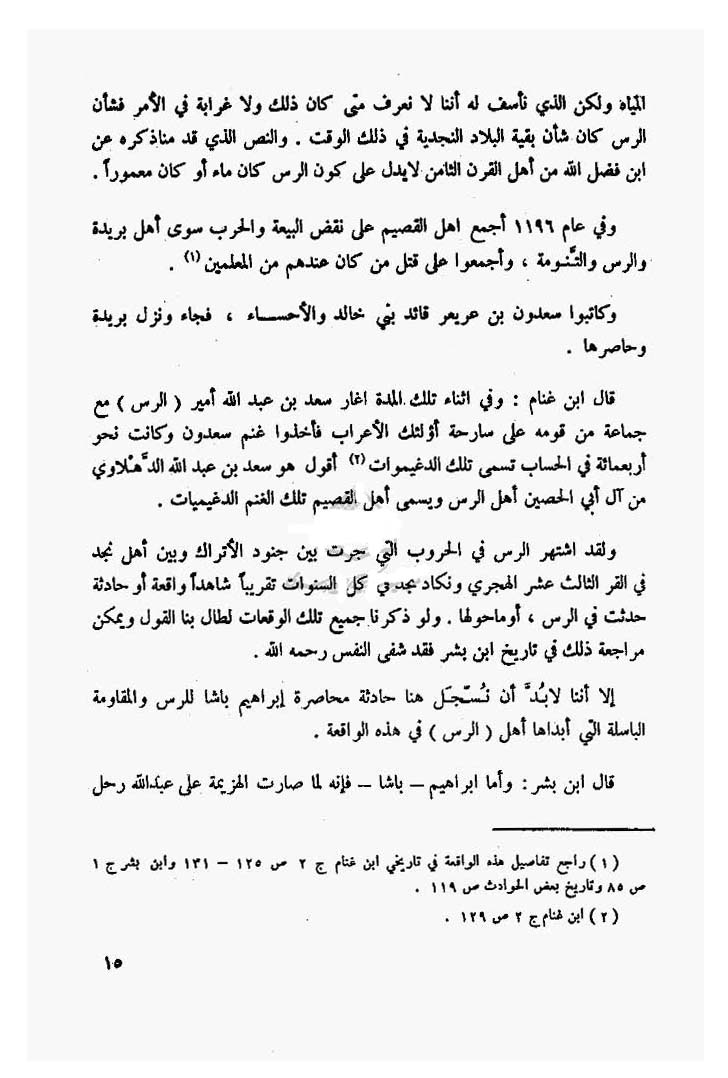 المياه ولكن الذي نأسف له أننا لا نعرف متى كان ذلك ولا غرابة في الأمر فشأن
الرس كان شأن بقية البلاد النجدية في ذلك الوقت . والنص الذي قد مناذكره عن
ابن فضل الله من أهل القرن الثامن لايدل على كون الرس كان ماء أو كان معموراً .
وفي عام ١١٩٦ أجمع اهل القصيم على نقض البيعة والحرب سوى أهل بريدة
والرس والتَّنومة ، وأجمعوا على قتل من كان عندهم من المعلمين (١) .
وكاتبوا سعدون بن عريعر قائد بني خالد والأحساء ، فجاء ونزل بريدة
وحاصرها .
قال ابن غنام : وفي اثناء تلك المدة اغار سعد بن عبد الله أمير ( الرس ) مع
جماعة من قومه على سارحة أؤلئك الأعراب فأخذوا غنم سعدون وكانت نحو
أربعمائة في الحساب تسمى تلك الدغيموات (٢) أقول هو سعد بن عبد الله الدَّهْلاوي
من آل أبي الحصين أهل الرس ويسمى أهل القصيم تلك الغنم الدغيميات .
ولقد اشتهر الرس في الحروب التي جرت بين جنود الأتراك وبين أهل نجد
في القر الثالث عشر الهجري ونكاد نجد في كل السنوات تقريباً شاهداً واقعة أو حادثة
حدثت في الرس ، أوماحولها . ولو ذكرنا جميع تلك الوقعات لطال بنا القول ويمكن
مراجعة ذلك في تاريخ ابن بشر فقد شفى النفس رحمه الله .
إلا أننا لابُدَّ أن نُسَجِّل هنا حادثة محاصرة إبراهيم باشا للرس والمقاومة
الباسلة التي أبداها أهل ( الرس ) في هذه الواقعة .
قال ابن بشر : وأما ابراهيم – باشا – فإنه لما صارت الهزيمة على عبدالله رحل
( ١ ) راجع تفاصيل هذه الواقعة في تاريخي ابن غنام ج ٢ ص ١٢٥ – ١٣١ وابن بشر ج ١
ص ٨٥ وتاريخ بعض الحوادث ص ١١٩ .
( ٢ ) ابن غنام ج ٢ ص ١٢٩ .
١٥